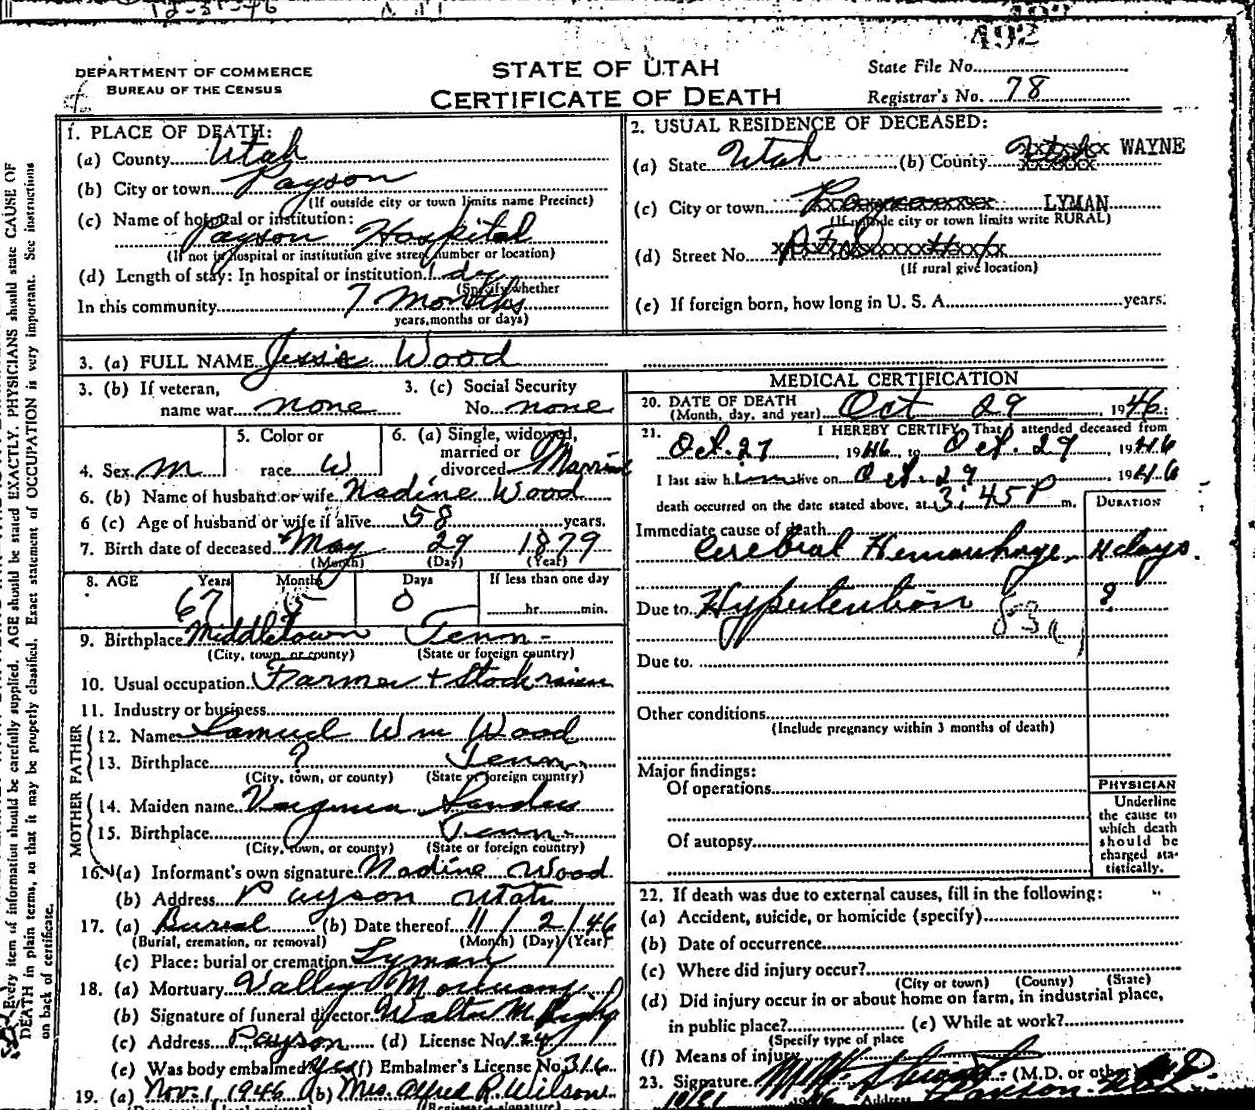 12-31-46
492
DEPARTMENT OF COMMERCE
BUREAU OF THE CENSUS
STATE OF UTAH
CERTIFICATE OF DEATH
State File No.
Registrar's No. 78
1. PLACE OF DEATH:
(a) County Utah
(b) City or town Payson
(If outside city or town limits name Precinct)
(c) Name of hospital or institution:
Payson Hospital
(If not in hospital or institution give street number or location)
(d) Length of stay: In hospital or institution 1 day
(Specify whether
In this community 7 Months
years, months or days)
2. USUAL RESIDENCE OF DECEASED:
(a) State Utah (b) County Utah WAYNE
(c) City or town LYMAN
(If outside city or town limits write RURAL)
(d) Street No.
(If rural give location)
(e) If foreign born, how long in U. S. A. years.
3. (a) FULL NAME Jessie Wood
3. (b) If veteran,
name war none
3. (c) Social Security
No. none
4. Sex m
5. Color or
race W
6. (a) Single, widowed,
married or
divorced Married
6. (b) Name of husband or wife Nadine Wood
6 (c) Age of husband or wife if alive 58 years.
7. Birth date of deceased May 29 1879
(Month) (Day) (Year)
8. AGE Years Months Days If less than one day
67 5 0 hr. min.
9. Birthplace Middletown Tenn-
(City, town, or county) (State or foreign country)
10. Usual occupation Farmer + Stockraiser
11. Industry or business
FATHER
12. Name Samuel Wm Wood
13. Birthplace ? Tenn.
(City, town, or county) (State or foreign country)
MOTHER
14. Maiden name Virginia Sanders
15. Birthplace ? Tenn-
(City, town, or county) (State or foreign country)
16. (a) Informant's own signature Nadine Wood
(b) Address Payson Utah
17. (a) Burial (b) Date thereof 11/2/46
(Burial, cremation, or removal) (Month) (Day) (Year)
(c) Place: burial or cremation Lyman
18. (a) Mortuary Valley Mortuary
(b) Signature of funeral director Walter M
(c) Address Payson (d) License No. 124
(e) Was body embalmed? yes (f) Embalmer's License No. 316
19. (a) Nov-1, 1946 (b) Mrs. Alfred R. Wilson
MEDICAL CERTIFICATION
20. DATE OF DEATH
(Month, day, and year) Oct 29, 1946.
21. I HEREBY CERTIFY, That I attended deceased from
Oct. 27, 1946, to Oct. 29, 1946
I last saw him alive on Oct. 29, 1946
death occurred on the date stated above, at 3:45 P m.
DURATION
Immediate cause of death
Cerebral Hemorrhage 4 days.
Due to Hypertention ?
83a
Due to
Other conditions
(Include pregnancy within 3 months of death)
Major findings:
Of operations
Of autopsy
PHYSICIAN
Underline
the cause to
which death
should be
charged sta-
tistically.
22. If death was due to external causes, fill in the following:
(a) Accident, suicide, or homicide (specify)
(b) Date of occurrence
(c) Where did injury occur?
(City or town) (County) (State)
(d) Did injury occur in or about home on farm, in industrial place,
in public place? (e) While at work?
(Specify type of place
(f) Means of injury
23. Signature (M.D. or other) M.D.
10/31 1946 Address Payson Utah
Every item of information should be carefully supplied. AGE should be stated EXACTLY. PHYSICIANS should state CAUSE OF
DEATH in plain terms, so that it may be properly classified. Exact statement of OCCUPATION is very important. See instructions
on back of certificate.